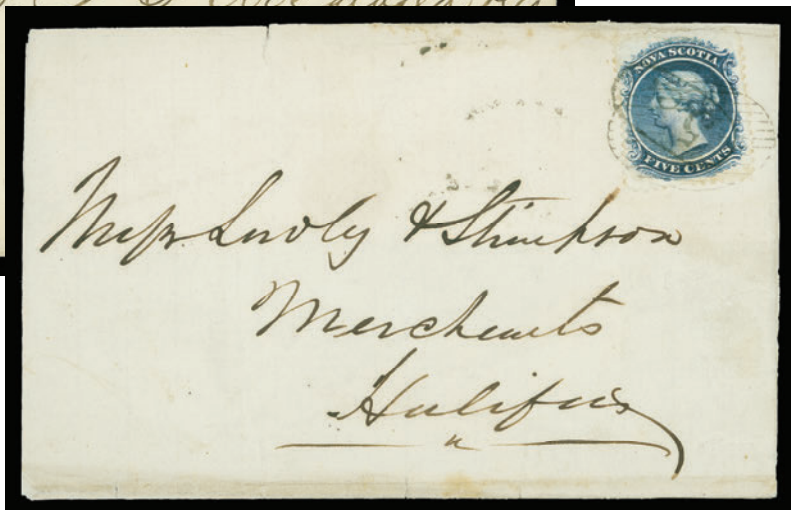 NOVA SCOTIA
FIVE CENTS
Messrs & Stimpson
Merchants
Halifax